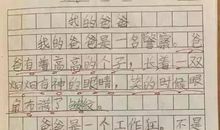 我的爸爸
我的爸爸是一名警察。爸
爸有着高高的个子，长着一双
炯炯有神的眼睛，笑的时候眼
角布满了皱纹。
爸爸是一个工作狂。不是